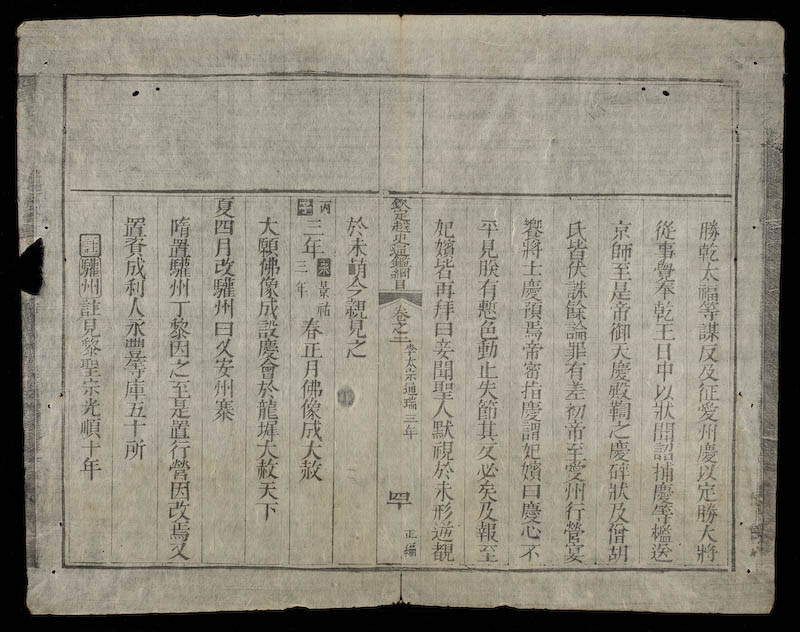 勝乾太福等謀反及征愛州慶以定勝大將
從事覺奉乾王日中以狀聞詔捕慶等檻送
京師至是帝御天慶殿鞫之慶碎狀及僧胡
氏皆伏誅餘論罪有差初帝至愛州行營宴
饗將士慶預焉帝密指慶謂妃嬪曰慶心不
平見朕有慙色動止失節其反必矣及報至
妃嬪皆再拜曰妾聞聖人默視於未形逆覩
欽定越史通鑑綱目 卷之二 李太宗通瑞三年 四十 正編
於未萌今親見之
丙子三年宋景祐三年 春正月佛像成大赦
大願佛像成設慶會於龍墀大赦天下
夏四月改驩州曰乂安州寨
隋置驩州丁黎因之至是置行營因改焉又
置資成利人永豐等庫五十所
註驩州註見黎聖宗光順十年